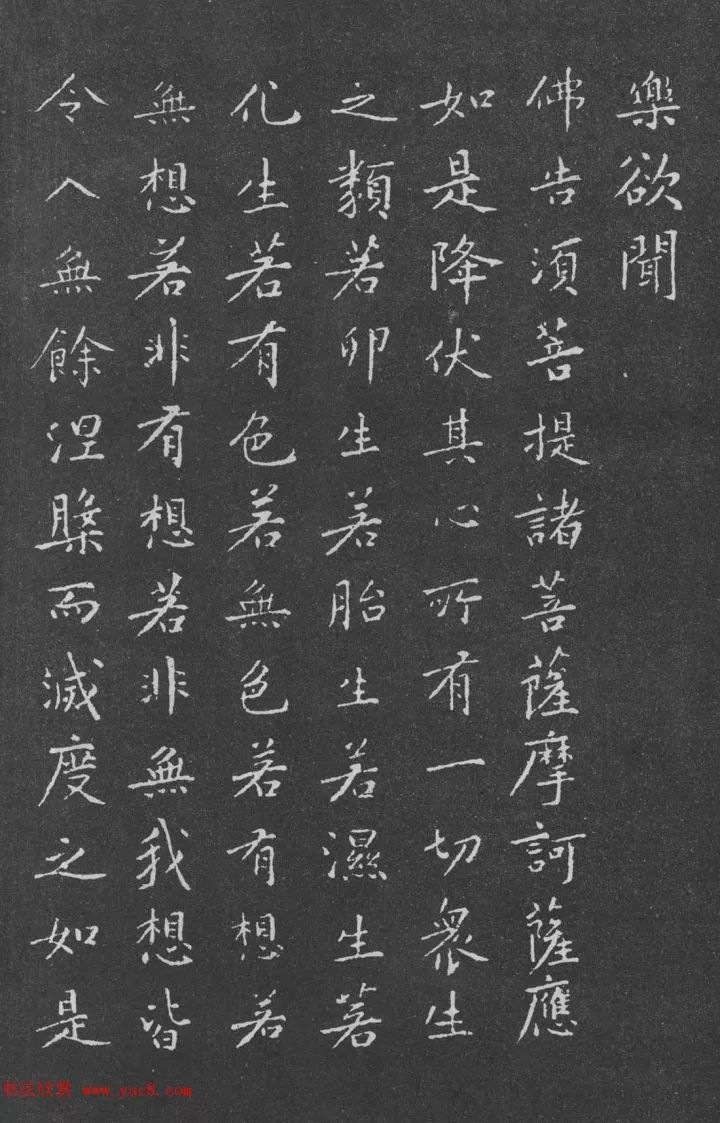 樂欲聞
佛告須菩提諸菩薩摩訶薩應
如是降伏其心所有一切衆生
之類若卵生若胎生若濕生若
化生若有色若無色若有想若
無想若非有想若非無我想皆
令入無餘涅槃而滅度之如是
书法欣赏 www.yac8.com